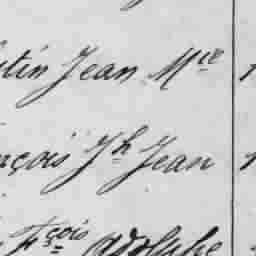 tin Jean Mce
nçois Jh Jean
Fçois adolphe